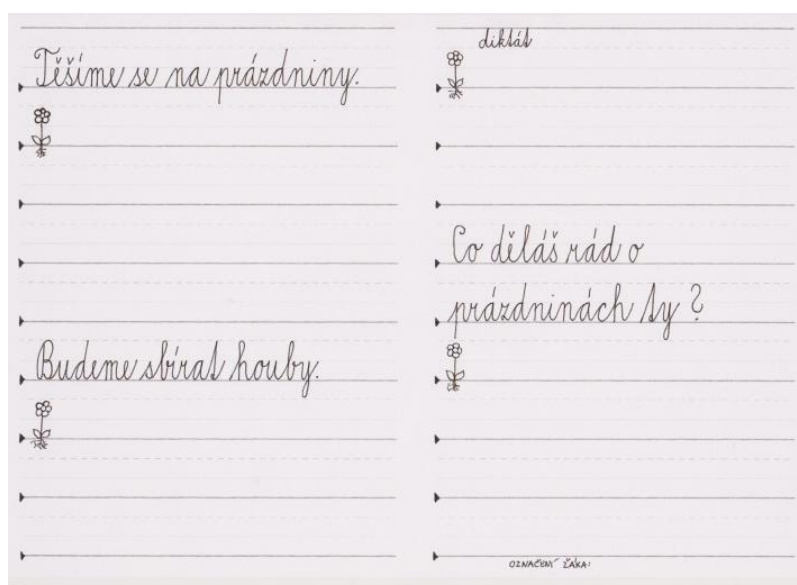 Těšíme se na prázdniny.
Budeme sbírat houby.
diktát
Co děláš rád o
prázdninách ty ?
OZNAČENÍ ŽÁKA: